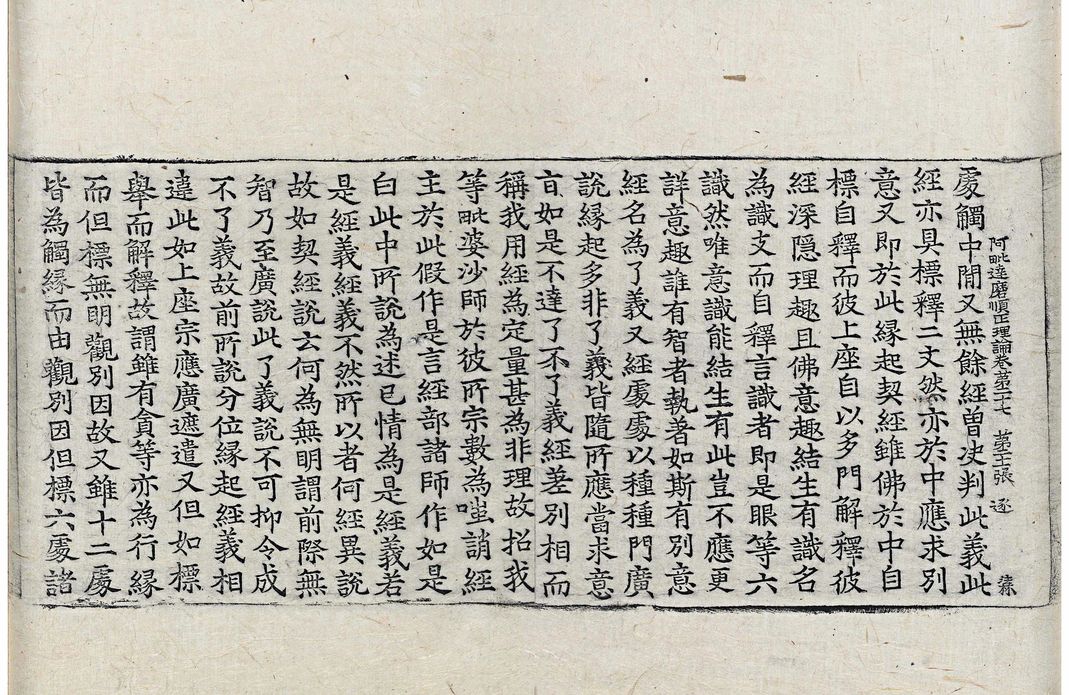 阿毗達磨順正理論卷第二十七 第 張 逐
處觸中閒又無餘經曾决判此義此
經亦具標釋二文然亦於中應求別
意又即於此緣起契經雖佛於中自
標自釋而彼上座自以多門解釋彼
經深隱理趣且佛意趣結生有識名
為識支而自釋言識者即是眼等六
識然唯意識能結生有此豈不應更
詳意趣誰有智者執著如斯有別意
經名為了義又經處處以種種門廣
說緣起多非了義皆隨所應當求意
旨如是不達了不了義經差別相而
稱我用經為定量甚為非理故招我
等毗婆沙師於彼所宗數為嗤誚經
主於此假作是言經部諸師作如是
白此中所說為述已情為是經義若
是經義經義不然所以者何經異說
故如契經說云何為無明謂前際無
智乃至廣說此了義說不可抑令成
不了義故前所說分位緣起經義相
違此如上座宗應廣遮遣又但如標
舉而解釋故謂雖有貪等亦為行緣
而但標無明觀別因故又雖十二處
皆為觸緣而由觀別因但標六處諸